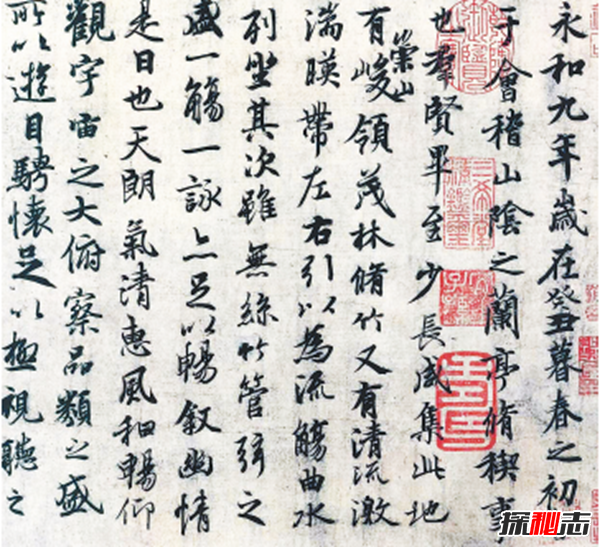 永和九年歲在癸丑暮春之初
于會稽山陰之蘭亭脩禊事
也羣賢畢至少長咸集此地
崇山
有峻領茂林脩竹又有清流激
湍暎帶左右引以為流觴曲水
列坐其次雖無絲竹管弦之
盛一觴一詠亦足以暢叙幽情
是日也天朗氣清惠風和暢仰
觀宇宙之大俯察品類之盛
所以遊目騁懷足以極視聽之
三希堂
精鑑璽
宜子孫
探秘志